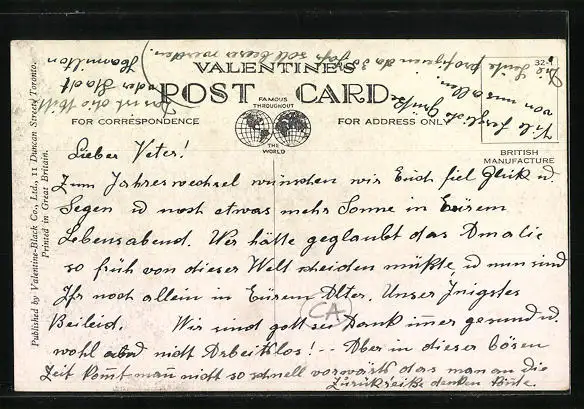 VALENTINE'S
POST CARD
FAMOUS
THROUGHOUT
THE
WORLD
FOR CORRESPONDENCE
FOR ADDRESS ONLY
32-
BRITISH
MANUFACTURE
Published by Valentine-Black Co., Ltd., 11 Duncan Street, Toronto.
Printed in Great Britain.
Lieber Veter!
Zum Jahreswechsel wünschen wir Euch fiel Glük u.
Segen u noch etwas mehr Sonne in Eürem
Lebensabend. Wer hätte geglaubt das Amalie
so früh von dieser Welt scheiden müßte, u nun sind
Ihr noch allein in Eürem Alter. Unser Inigstes
Beileid. Wir sind gott sei Dank imer gesund u.
wohl und nicht Arbeitslos! -- Aber in dieser bösen
Zeit komt man nicht so schnell vorwärts das man an die
Zurükreiße denken könte.
CA
Die Leute das 30 Jahr soll besser werden.
von uns allen.
Stadt
Hamilton